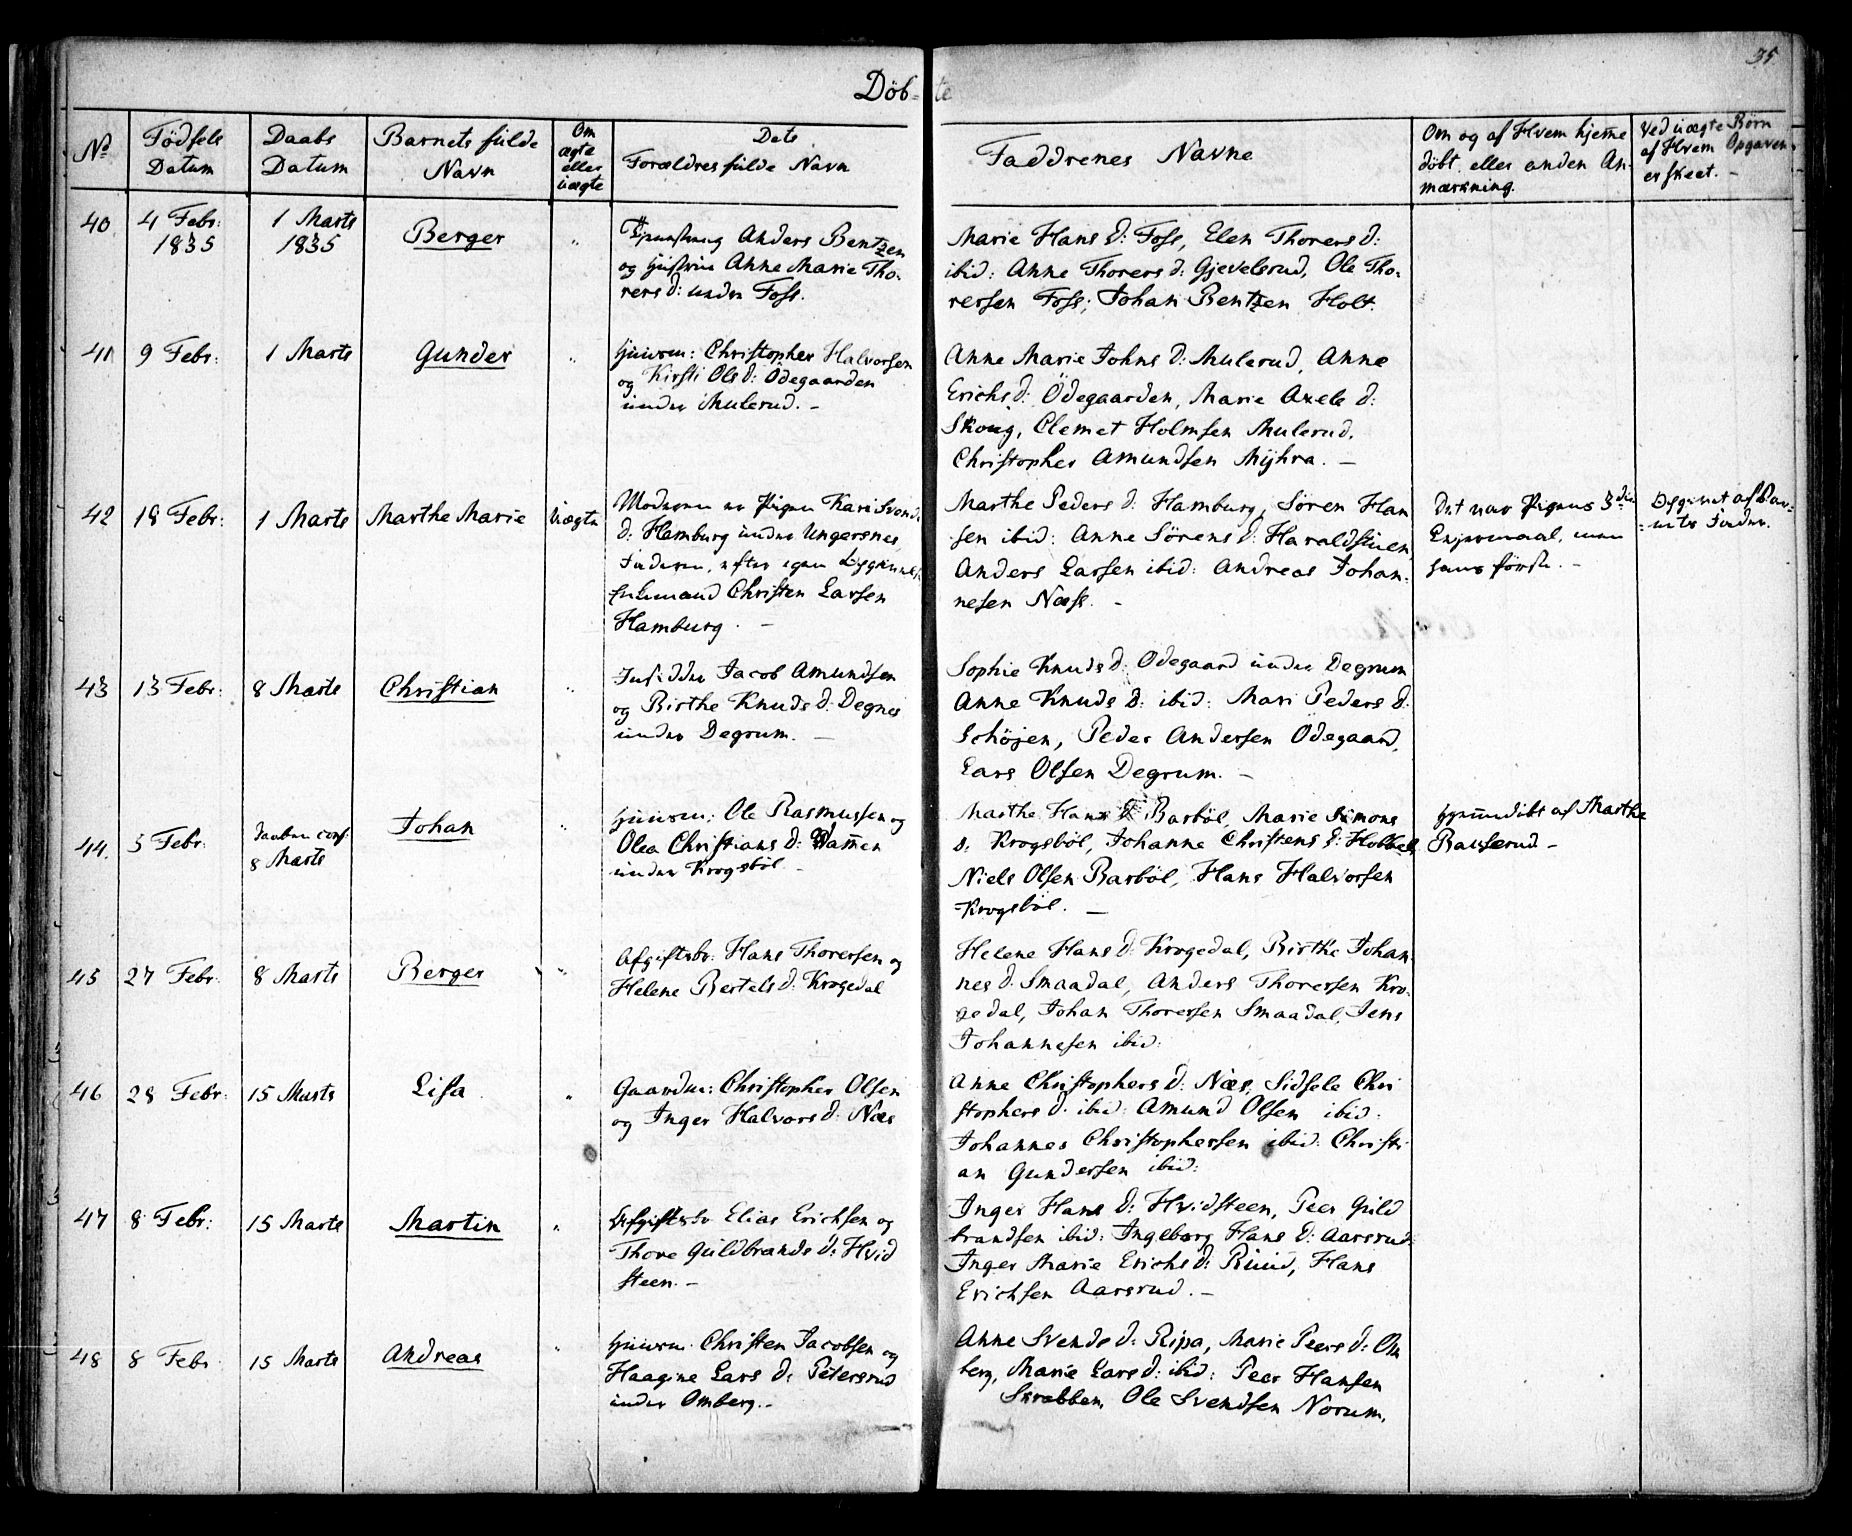 35
Döb- te
No
Födsels
Datum
Daabs
Datum
Barnets fulde
Navn
Om
ægte
eller
uægte
Dets
Forældres fulde Navn
Faddrenes Navne
Om og af Hvem hjemme
döbt eller anden An-
mærkning.
Ved uægte Börn
af Hvem Opgaven
er skeet. -
40
4 Febr:
1835
1 Marts
1835
Berger
"
Anders Bentzen
og Hustrue Anne Marie Tho-
rers d: under Foss.
Marie Hans d: Foss, Elen Thorers d:
ibid: Anne Thorers d: Gjevelsrud, Ole Tho-
rersen Foss, Johan Bentzen Holt.
41
9 Febr:
1 Marts
Gunder
"
Huusm: Christopher Halvorsen
og Kirsti Ols d: Ödegaarden
under Mulerud. -
Anne Marie Johns d: Mulerud, Anne
Erichs d: Ödegaarden, Marie Axels d:
Skoug, Clemet Holmsen Mulerud,
Christopher Amundsen Mÿhra. -
42
18 Febr:
1 Marts
Marthe Marie
Uægte
Moderen er Pigen Kari Svends
d: Hamburg under Ungersnes,
Faderen, efter egen
Christen Larsen
Hamburg. -
Marthe Peders d: Hamburg, Sören Han
sen ibid: Anne Sörens d: Haraldstuen,
Anders Larsen ibid: Andreas Johan-
nesen Næss. -
Det var Pigens 3die
Lejermaal, men
hans förste. -
af Bar-
nets Fader.
43
13 Febr:
8 Marts
Christian
"
Indsidder Jacob Amundsen
og Birthe Knuds d: Degnes
under Degrum. -
Sophie Knuds d: Ödegaard under Degrum
Anne Knuds d: ibid: Mari Peders d:
Schöjen, Peder Andersen Ödegaard,
Lars Olsen Degrum. -
44.
5 Febr:
Daaben conf.
8 Marts
Johan
"
Huusm: Ole Rasmussen og
Olea Christians d: Dammen
under Krogsböl. -
Marthe Hans d: Barböl, Marie Simons
d: Krogsböl, Johanne Christens d: Hobbel,
Niels Olsen Barböl, Hans Halvorsen
Krogsböl. -
Hjemmedöbt af Marthe
Bauserud -
45
27 Febr:
8 Marts
Berger
"
Afgiftsbr: Hans Thorersen og
Helene Bertels d: Krogedal
Helene Hans d: Krogedal, Birthe Johan-
nes d: Smaadal, Anders Thorersen Kro-
gedal, Johan Thorersen Smaadal, Jens
Johannesen ibid:
46
28 Febr:
15 Marts
Lisa
"
Gaardm: Christopher Olsen
og Inger Halvors d: Næs
Anne Christophers d: Næs, Sidsele Chri
stophers d: ibid: Amund Olsen ibid:
Johannes Christophersen ibid: Christi
an Gundersen ibid:
47
8 Febr:
15 Marts
Martin
"
Afgiftsbr Elias Erichsen og
Thore Guldbrands d: Hvid
steen. -
Inger Hans d: Hvidsteen, Peer Guld
brandsen ibid: Ingeborg Hans d: Aarsrud
Inger Marie Erichs d: Ruud, Hans
Erichsen Aarsrud. -
48
8 Febr
15 Marts
Andreas
"
Huusm: Christen Jacobsen og
Haagine Lars d: Petersrud
under Omberg. -
Anne Svends d: Ripa, Marie Peers d: Om
berg, Marie Lars d: ibid: Peer Hansen
Skrabben, Ole Svendsen Norum.